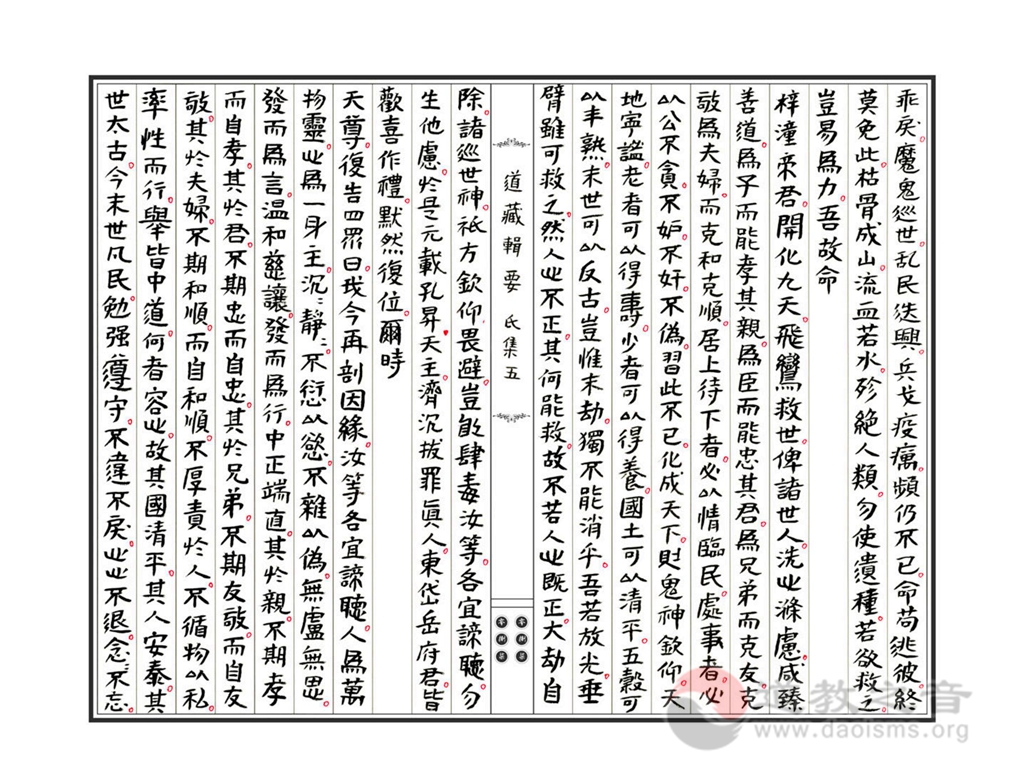 乖戾魔鬼巡世乱民迭興兵戈疫癘頻仍不已命苟逃彼終
莫免此枯骨成山流血若水殄絕人類勿使遺種若欲救之
豈易爲力吾故命
梓潼帝君開化九天飛鸞救世俾諸世人洗心滌慮咸臻
善道爲子而能孝其親爲臣而能忠其君爲兄弟而克友克
敬爲夫婦而克和克順居上待下者必以情臨民處事者必
以公不貪不妒不奸不偽習此不已化成天下則鬼神欽仰天
地寧謐老者可以得壽少者可以得養國土可以清平五穀可
以丰熟末世可以反古豈惟末劫獨不能消乎吾若放光垂
臂雖可救之然人心不正其何能救故不若人心既正大劫自
道藏輯要 氐集五
除諸巡世神祇方欽仰畏避豈敢肆毒汝等各宜諦聽勿
生他慮於是元載孔昇天主濟沉拔罪眞人東岱岳府君皆
歡喜作禮默然復位爾時
天尊復告四眾曰我今再剖因緣汝等各宜諦聽人爲萬
物靈心爲一身主沉沉靜靜不愆以慾不雜以偽無盧無思
發而爲言溫和慈讓發而爲行中正端直其於親不期孝
而自孝其於君不期忠而自忠其於兄弟不期友敬而自友
敬其於夫婦不期和順而自和順不厚責於人不循物以私
率性而行舉皆中道何者容心故其國清平其人安泰其
世太古今末世凡民勉强遵守不違不戾心心不退念念不忘
道教之音
www.daoisms.org